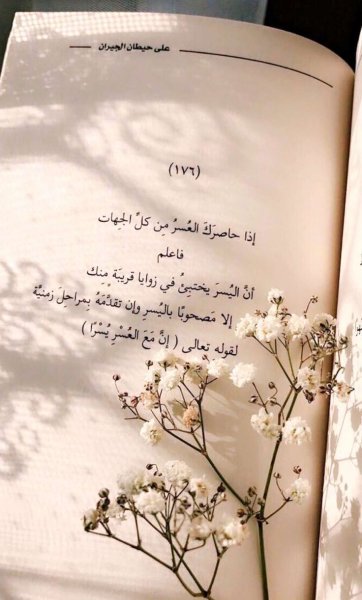 على حيطان الجيران
(١٧٦)
إذا حاصرَكَ العُسرُ مِن كلِّ الجِهات
فاعلم
أنَّ اليُسرَ يختبِئُ في زوايا قريبَة مِنك
إلا مَصحوبًا باليُسرِ وإن تقدَّمَهُ بِمراحلَ زمنيَّة
لقوله تعالى ( إنَّ مَعَ العُسْرِ يُسْرًا )